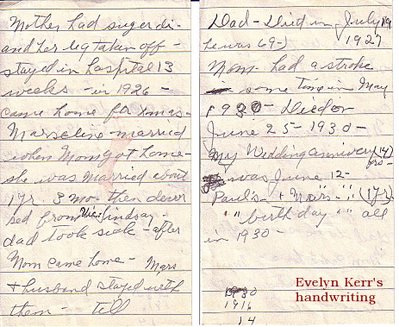 Mother had suger di-
and her leg taken off -
stayed in hospital 13
weeks - in 1926 -
came home for Xmas -
Marseline - married
when Mom got home -
she was married about
1 yr. 3 mo - then
from Lindsay -
dad took sick - after
Mom came home - Mars
& husband stayed with
them - till
Dad - Died in July 19
he was 69 -) 1927
Mom - had a stroke
- some time in May
1930 - Died on
June 25 - 1930 -
My Wedding (14)
was June 12 -
Paul's + " " (17 yr)
" " birthday " all
in 1930 -
1930
1916
14
Evelyn Kerr's
handwriting